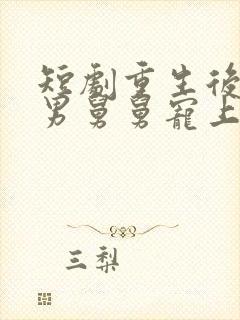 短劇重生後
男舅舅寵上
三梨